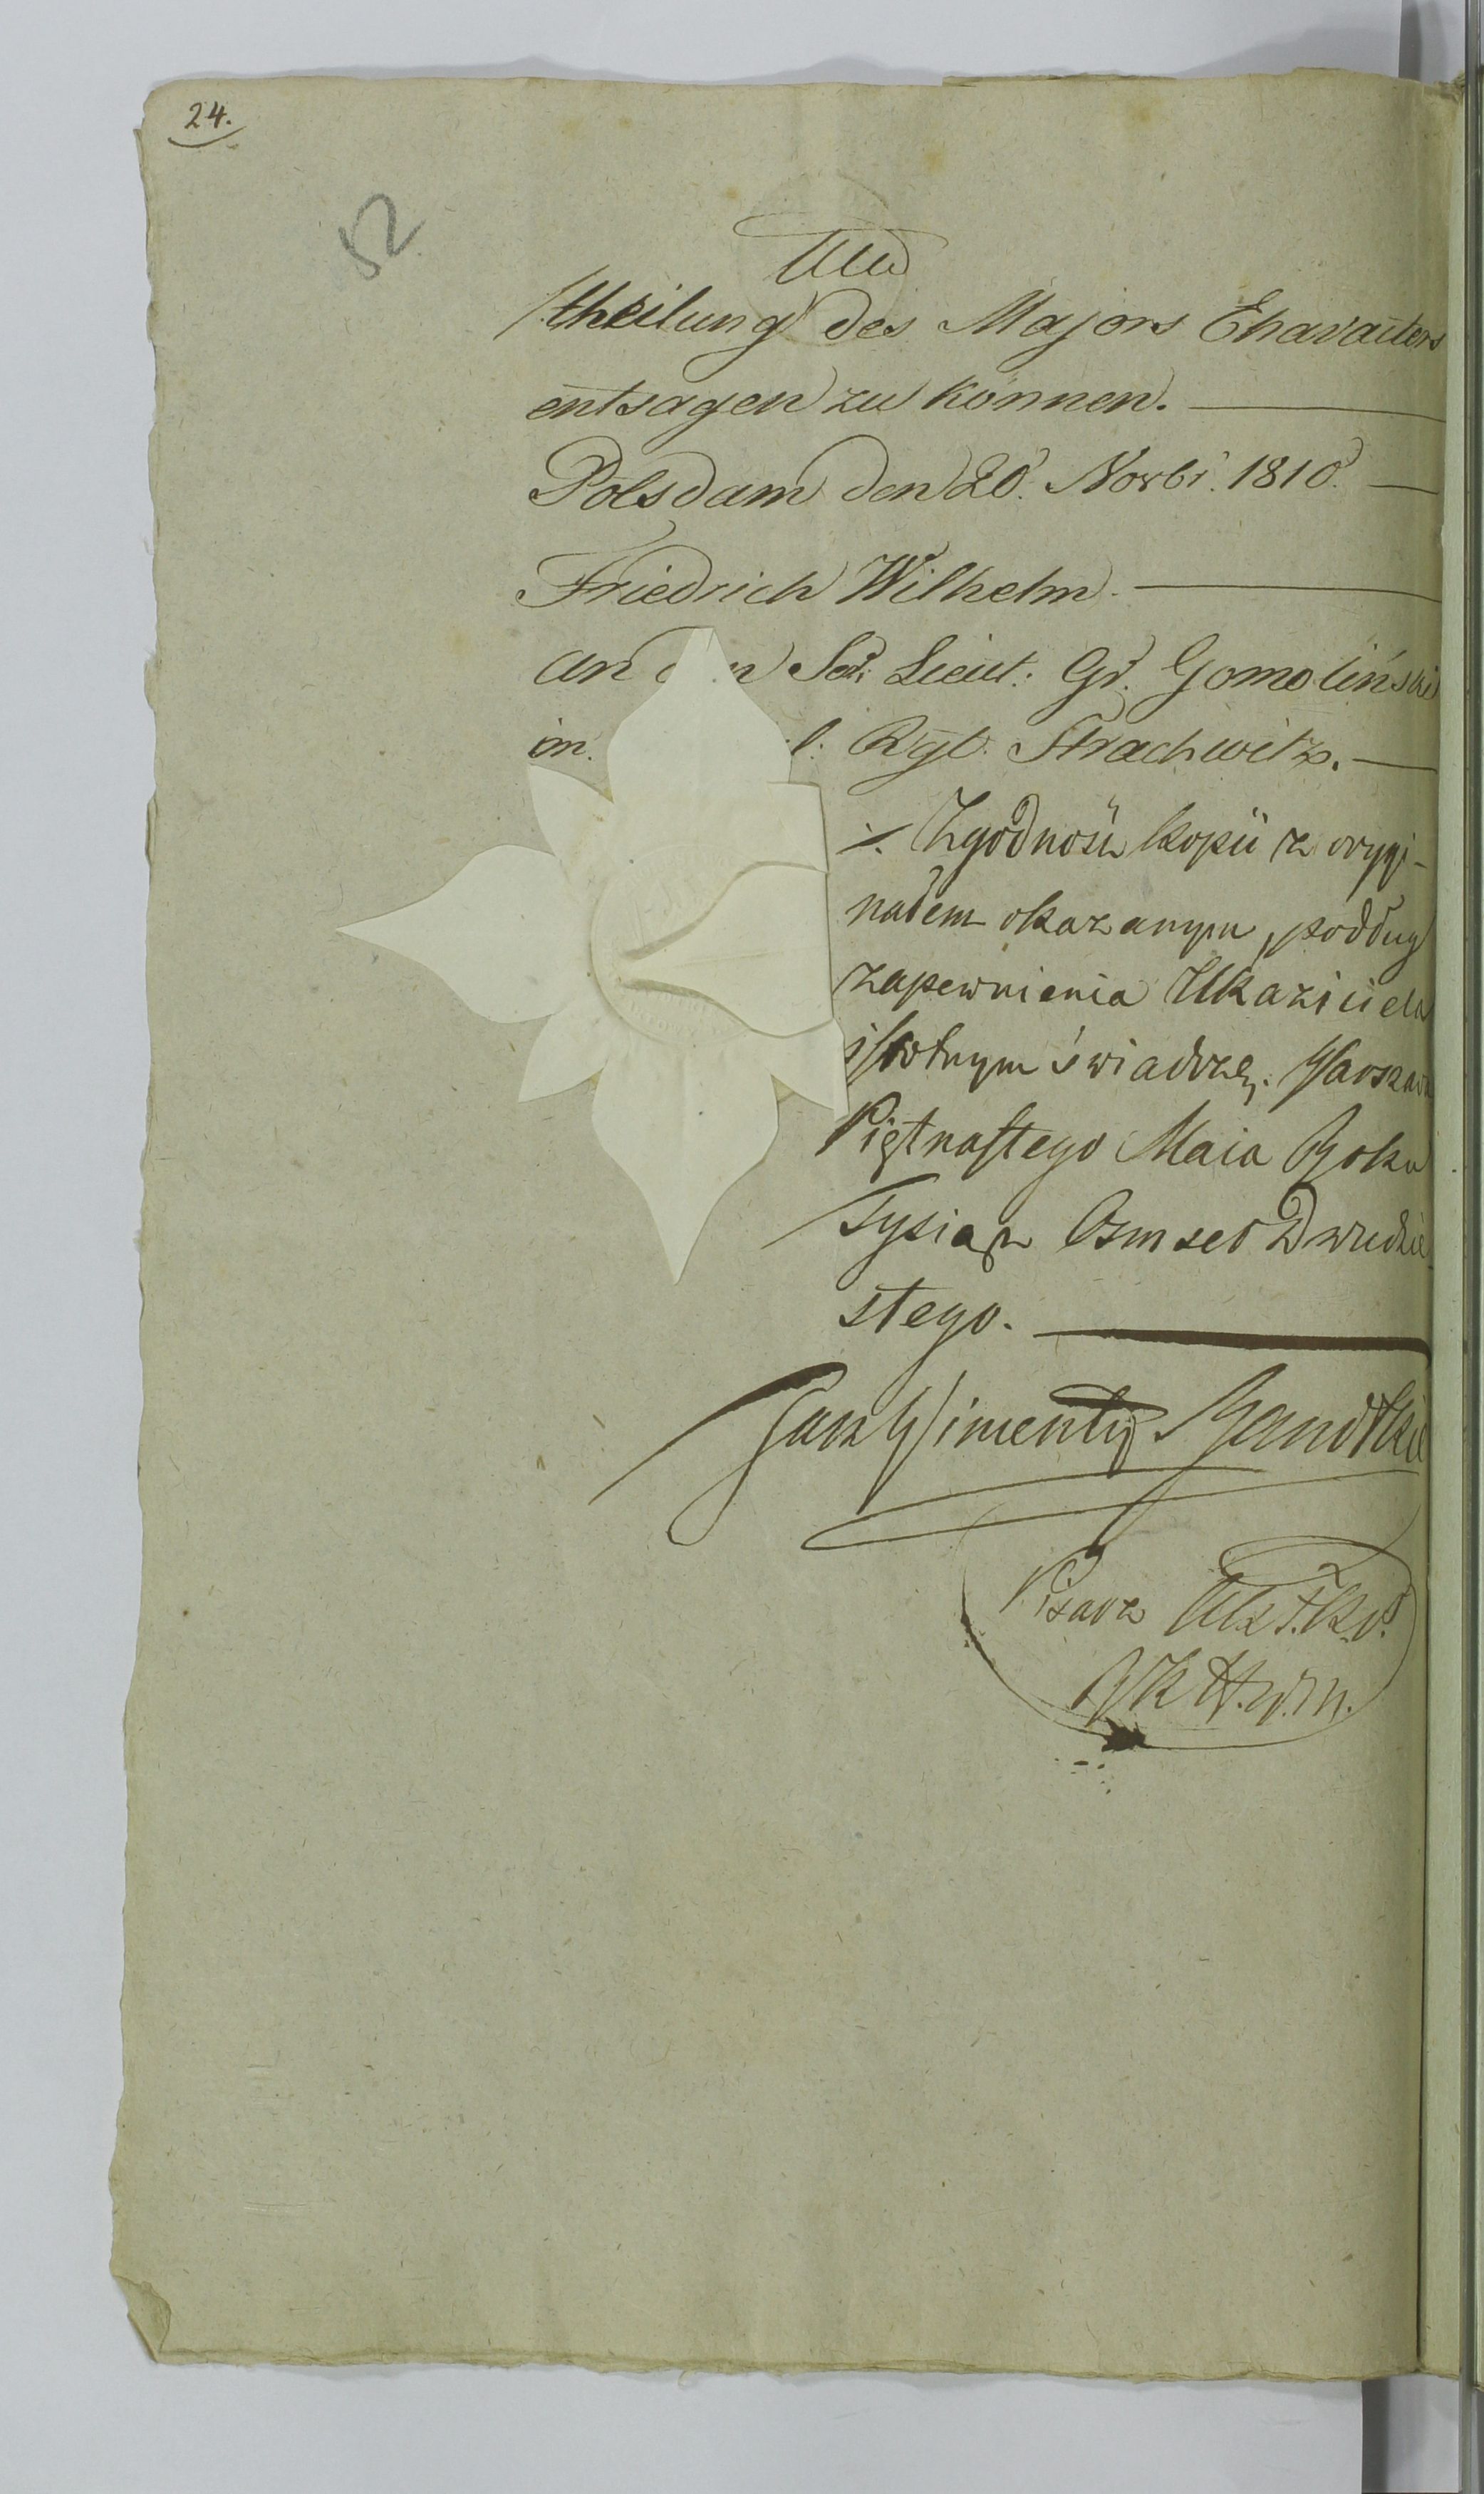 24.
52
theilung des Majors Charakters
entsagen zu können.
Potsdam den 20. Novbr. 1810.
Friedrich Wilhelm.
an d n Sec. Lieut: Gr. Gomoliński
im. l. Rgt. Strachwitz.
Zgodność kopii z orygi-
nałem okazanym, podług
zapewnienia Ukaziciela
istotnym świadczę. Warszawa
Piętnastego Maia Roku
Tysiąc Osmset Dwudzie
stego.
Jan Wincenty Bandtkie
Pisarz